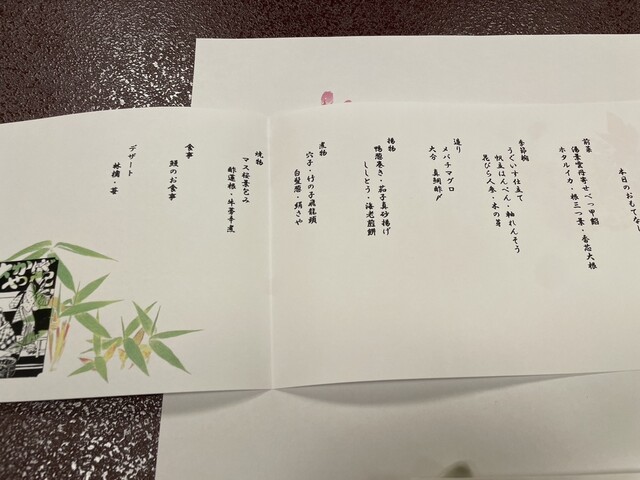 本日のおもてなし
前菜
湯葉雲丹寄せべっ甲餡
ホタルイカ・根三つ葉・香芯大根
季節椀
うぐいす仕立て
帆立はんぺん・軸れんそう
花びら人参・木の芽
造り
メバチマグロ
大分 真鯛酢〆
揚物
鴨葱巻き・茄子真砂揚げ
ししとう・海老煎餅
煮物
穴子・竹の子飛龍頭
白髪葱・絹さや
焼物
マス桜葉包み
酢蓮根・牛蒡手煮
食事
鰻のお食事
デザート
林檎・苺